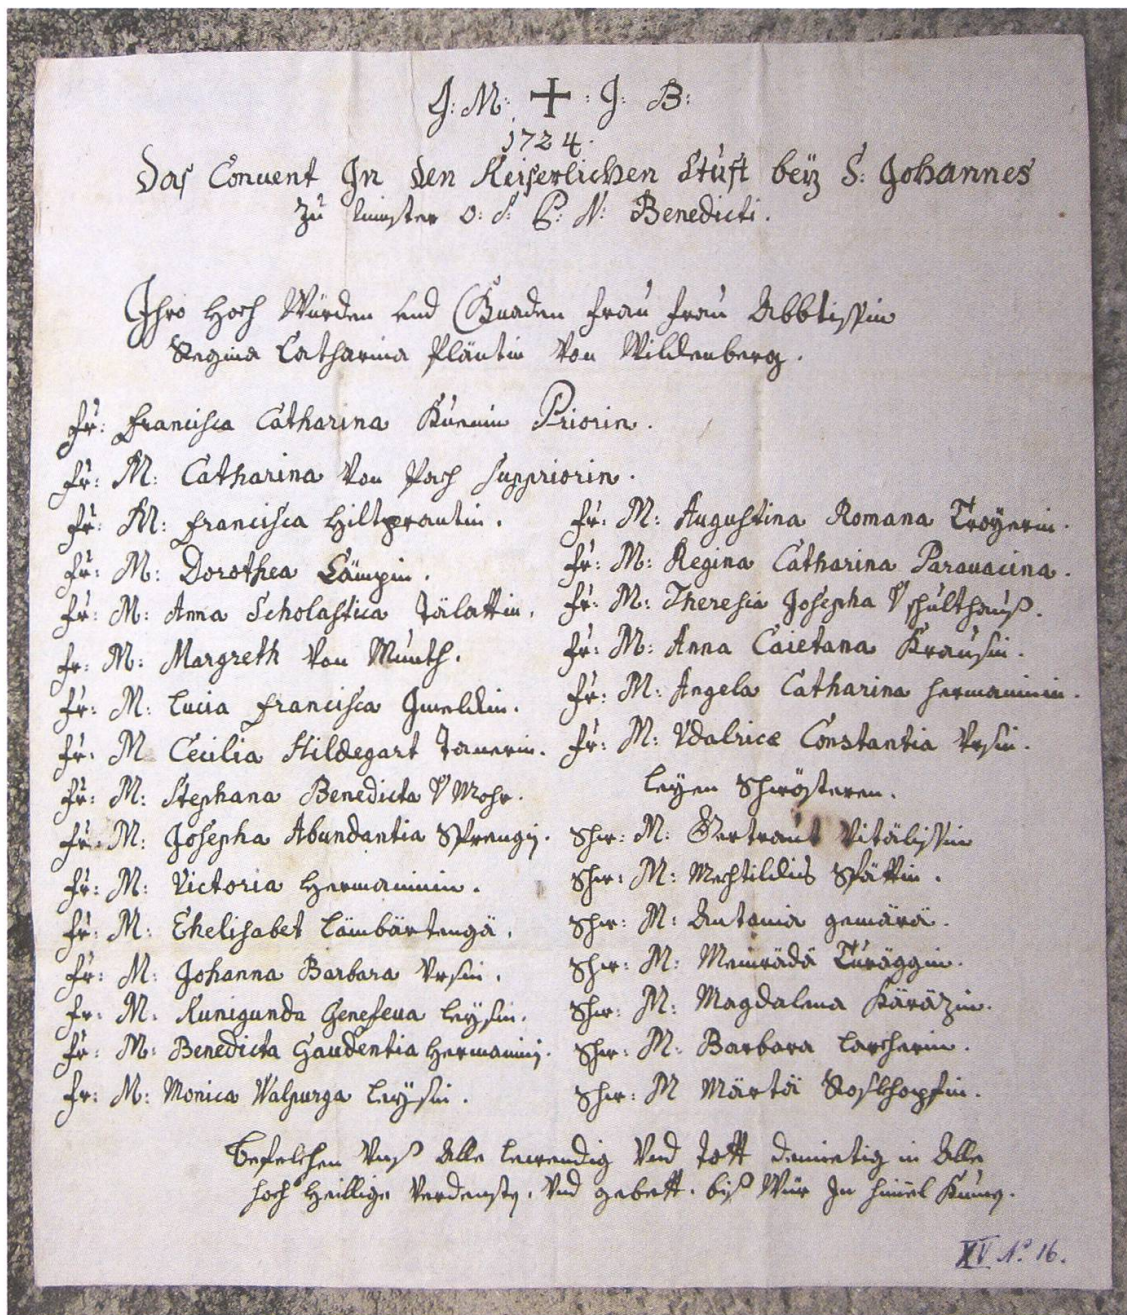 J: M: ✝ : J: B:
1724.
Das Conuent Jn den Keiserlichen Stüft beÿ S: Johannes
zu Minster O: S: P: N: Benedicti.
Jhro Hoch Würden und Gnaden frau frau Abbtissin
Regina Catharina Pläntin Von Wildenberg.
fr: Francisca Catharina Kuenin Priorin.
fr: M: Catharina Von Pach Suppriorin.
fr: M: Francisca Hiltprantin.
fr: M: Dorothea Lämpin.
fr: M: Anna Scholastica Jälattin.
fr: M: Margreth Von Munth.
fr: M: Lucia Francisca Jmeldin.
fr: M Cecilia Hildegart Janerin.
fr: M: Stephana Benedicta V Mohr.
fr: M: Josepha Abundantia Sprengÿ.
fr: M: Victoria Hermaninin.
fr: M: Ehelisabet Lambärtengä.
fr: M: Johanna Barbara Vrsin.
fr: M: Kunigunda Genefeua Leÿsin.
fr: M: Benedicta Gaudentia Hermaninÿ.
fr: M: Monica Walpurga Leÿsin.
fr: M: Augustina Romana Troÿerin.
fr: M: Regina Catharina Parauacina.
fr: M: Theresia Josepha V Schulthauß.
fr: M: Anna Caietana Krausin.
fr: M: Angela Catharina Hermaninin.
fr: M: Vdalrica Constantia Vrsin.
Leÿen Schwösteren.
Schw: M: Gertraut Vitälissin
Schw: M: Mechtildis Spättin.
Schw: M: Antonia gemärä.
Schw: M: Meinrädä Turäggin.
Schw: M: Magdalena Käräzin.
Schw: M: Barbara Larcherin.
Schw: M Märtä Roskhopfin.
Befelchen Vnß Alle lewendig Vnd Tott demietig in Alle
hoch Heillige Verdenstÿ. Vnd gebett. biß Wür Jn himel Kumÿ.
XV N.º 16.